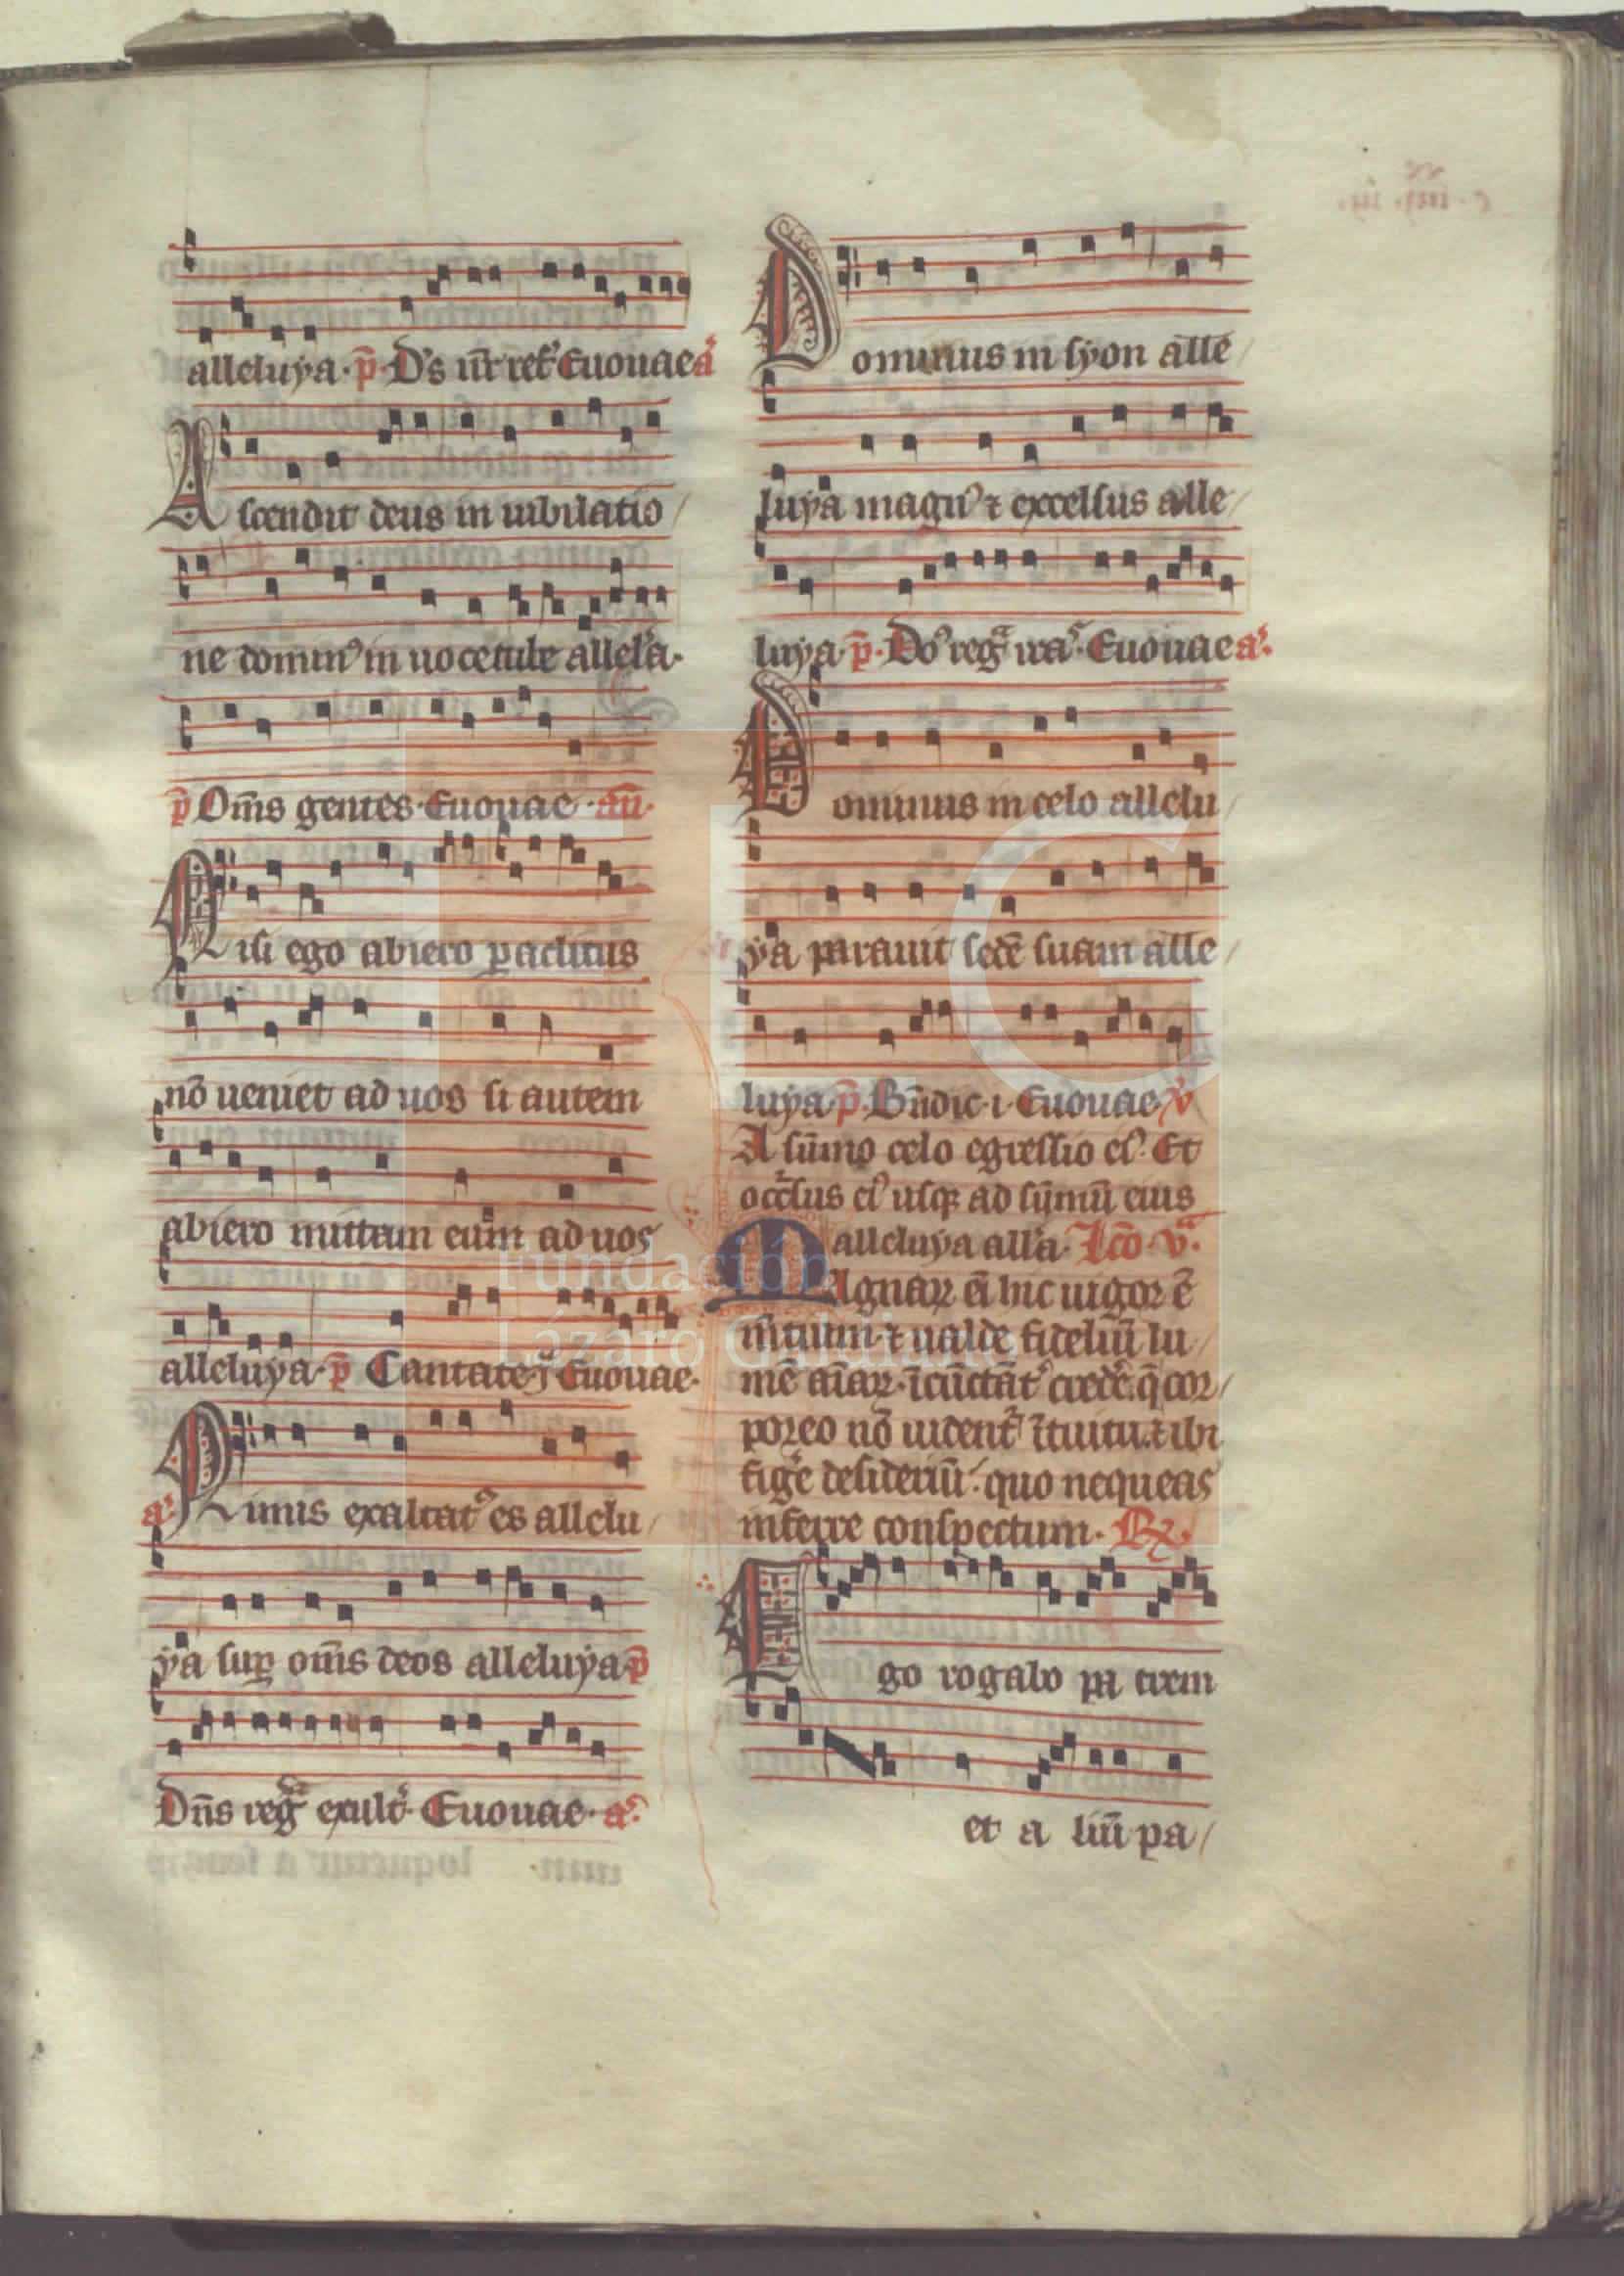 alleluya. p̄. D's nr̄ ref' Euouae a'
Ascendit deus in iubilatio
ne domin' in uoce tube allel'a.
p̄ Om̄s gentes. Euouae. an̄.
Nisi ego abiero paclitus
nō ueniet ad uos si autem
abiero mittam eum ad uos
alleluya. p̄ Cantate. j. Euouae.
a' Nimis exaltat' es allelu
ya sup om̄s deos alleluya p̄
Dn̄s reg exult'. Euouae. a'
Dominus in syon alle
luya magn' ⁊ excelsus alle
luya. p̄. Do' reg ira'. Euouae a'.
Dominus in celo allelu
ya parauit sedē suam alle
luya. p̄. Bn̄dic. i. Euouae. v'
A sūmo celo egressio ei'. Et
occ'sus ei' usq ad sūmū eius
alleluya all'a. Lcō. v.
Magnaꝝ ei hic uigor ē
mtium. ⁊ ualde fideliū lu
mē aīaꝝ. īcūctāt' cred'e. q̄ cor
poreo nō uident' ītuitu. ⁊ ibi
fig'e desideriū. quo nequeas
inferre conspectum. ℞.
Ego rogabo pa trem
et a liū pa
Fundación
Lázaro Galdiano